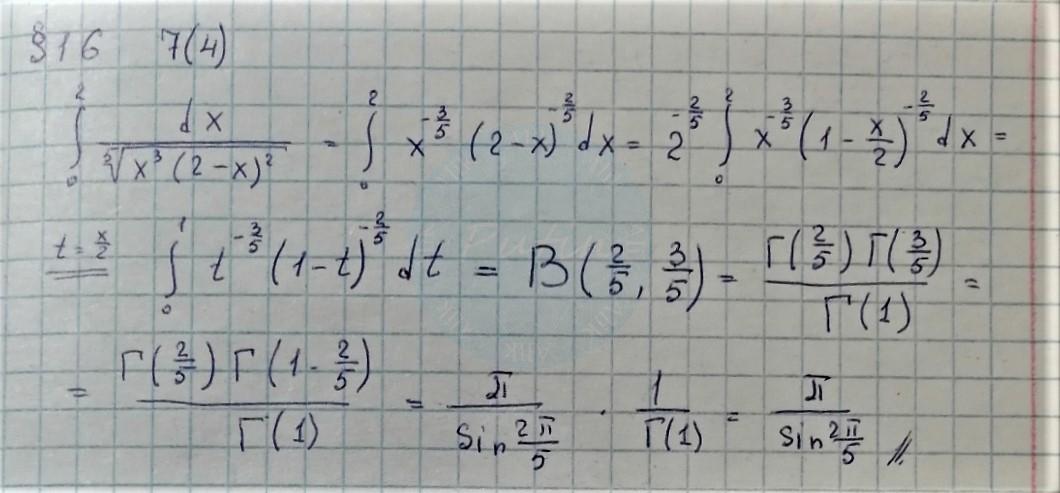 §16 7(4)
∫₀² dx / ⁵√(x³(2-x)²) = ∫₀² x^(-3/5) (2-x)^(-2/5) dx = 2^(-2/5) ∫₀² x^(-3/5) (1 - x/2)^(-2/5) dx =
t = x/2 ∫₀¹ t^(-3/5) (1-t)^(-2/5) dt = B(2/5, 3/5) = Γ(2/5) Γ(3/5) / Γ(1) =
= Γ(2/5) Γ(1 - 2/5) / Γ(1) = π / sin 2π/5 · 1 / Γ(1) = π / sin 2π/5 //.